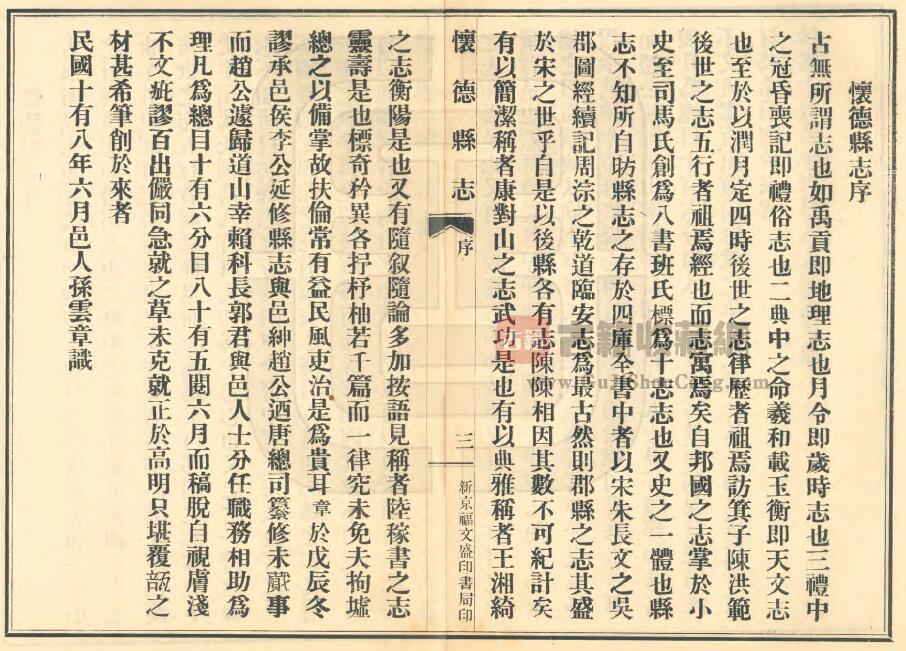 懷德縣志序
古無所謂志也如禹貢即地理志也月令即歲時志也三禮中
之冠昏喪記即禮俗志也二典中之命羲和載玉衡即天文志
也至於以潤月定四時後世之志律歷者祖焉訪箕子陳洪範
後世之志五行者祖焉經也而志寓焉矣自邦國之志掌於小
史至司馬氏創為八書班氏標為十志志也又史之一體也縣
志不知所自昉縣志之存於四庫全書中者以宋朱長文之吳
郡圖經續記周淙之乾道臨安志為最古然則郡縣之志其盛
於宋之世乎自是以後縣各有志陳陳相因其數不可紀計矣
有以簡潔稱者康對山之志武功是也有以典雅稱者王湘綺
懷德縣志
序
三
新京福文盛印書局印
之志衡陽是也又有隨叙隨論多加按語見稱者陸稼書之志
靈壽是也標奇矜異各抒杼柚若千篇而一律究未免夫拘墟
總之以備掌故扶倫常有益民風吏治是為貴耳章於戊辰冬
謬承邑侯李公延修縣志與邑紳趙公迺唐總司纂修未蕆事
而趙公遽歸道山幸賴科長郭君與邑人士分任職務相助為
理凡為總目十有六分目八十有五閱六月而稿脫自視膚淺
不文疵謬百出儼同急就之草未克就正於高明只堪覆瓿之
材甚希筆創於來者
民國十有八年六月邑人孫雲章識
古籍
古籍收藏網
www.GuJiShouCang.com